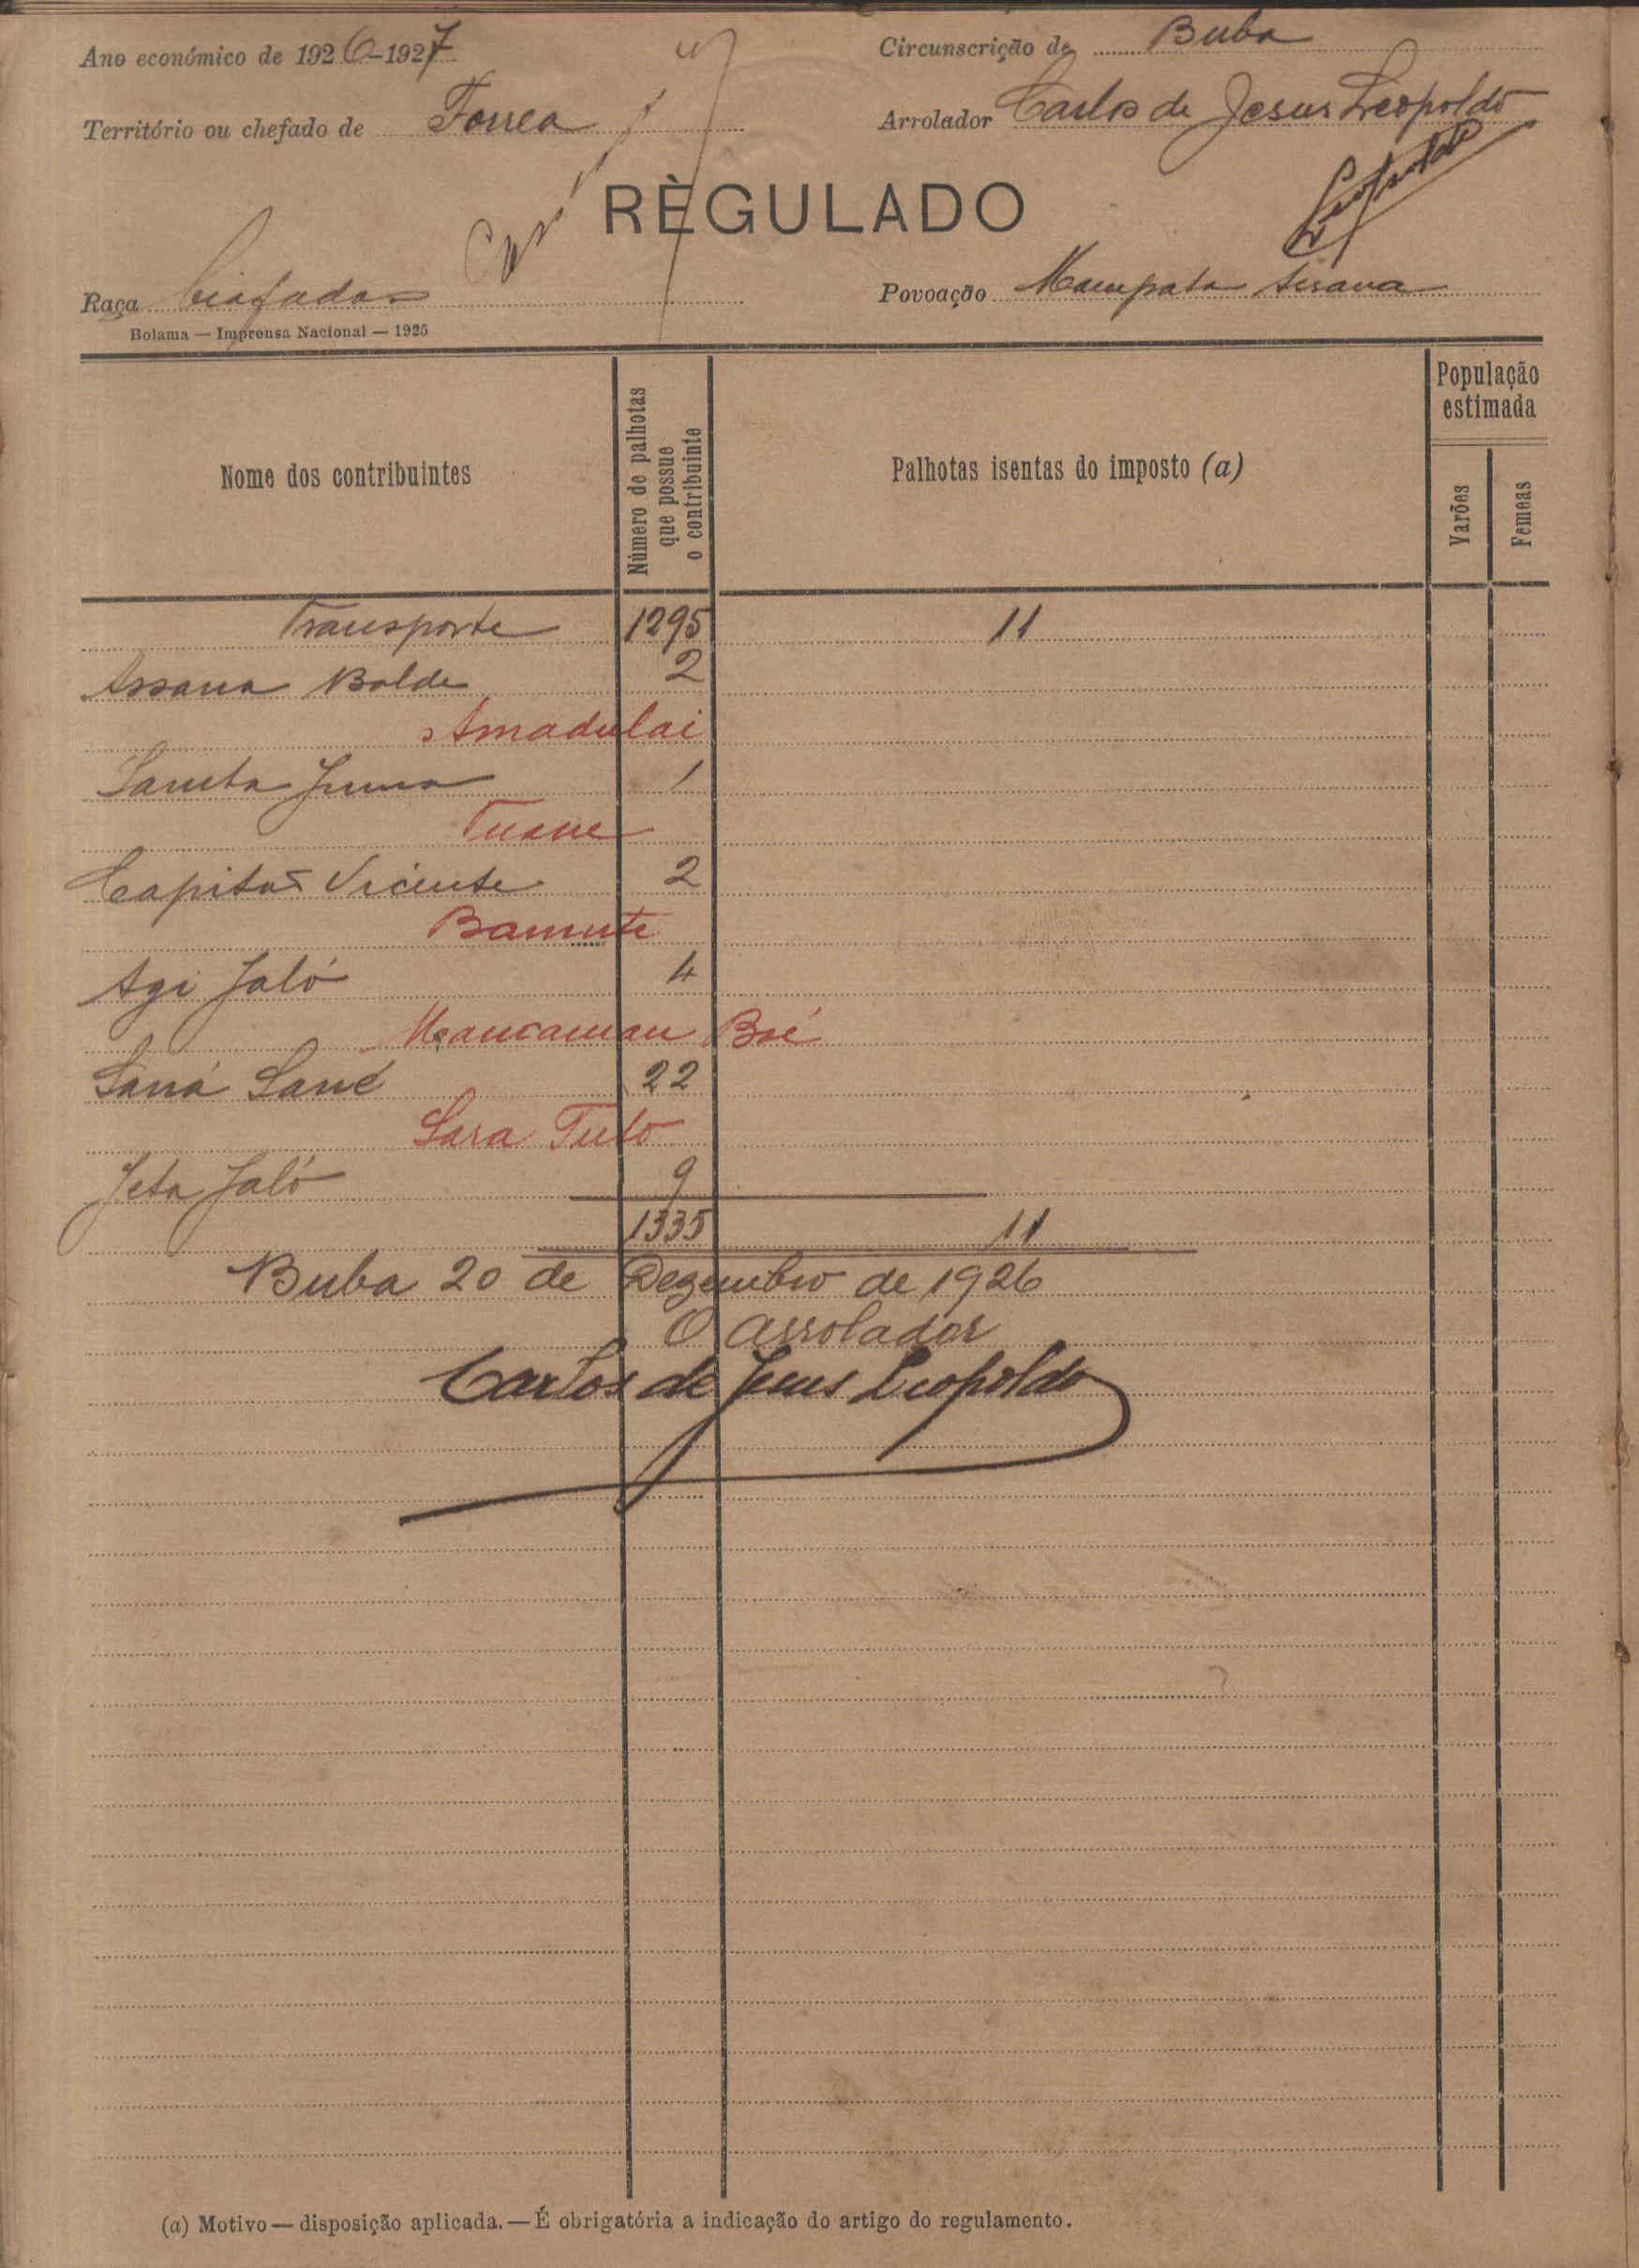 Ano económico de 1926-1927
Circunscrição de Buba
Território ou chefado de Forrea
Arrolador Carlos de Jesus Leopoldo
Leopoldo
RÈGULADO
Raça Biafadas
Povoação Mampata
Bolama — Imprensa Nacional — 1925
Nome dos contribuintes
Número de palhotas que possue o contribuinte
Palhotas isentas do imposto (a)
População estimada
Varões
Femeas
Transporte 1295 11
Assana Balde 2
Amadulai
Juma 1
Tuane
Capitão Vicente 2
Bamute
Agi Jaló 4
Mancaman Boé
Saná Sané 22
Sara Tuto
Jeta Jaló 9
1335 11
Buba 20 de Dezembro de 1926
O arrolador
Carlos de Jesus Leopoldo
(a) Motivo — disposição aplicada. — É obrigatória a indicação do artigo do regulamento.